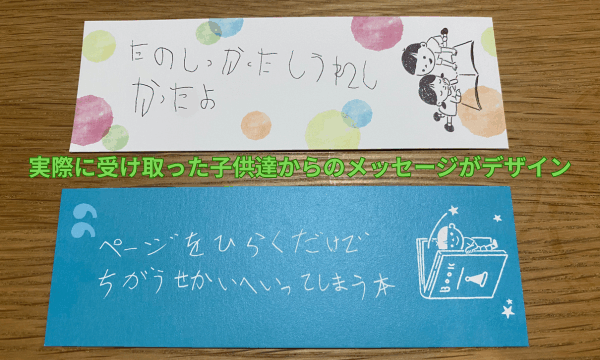 たのしっかたしうれし
かったよ
実際に受け取った子供達からのメッセージがデザイン
ページをひらくだけで
ちがうせかいへいってしまう本
BOOK